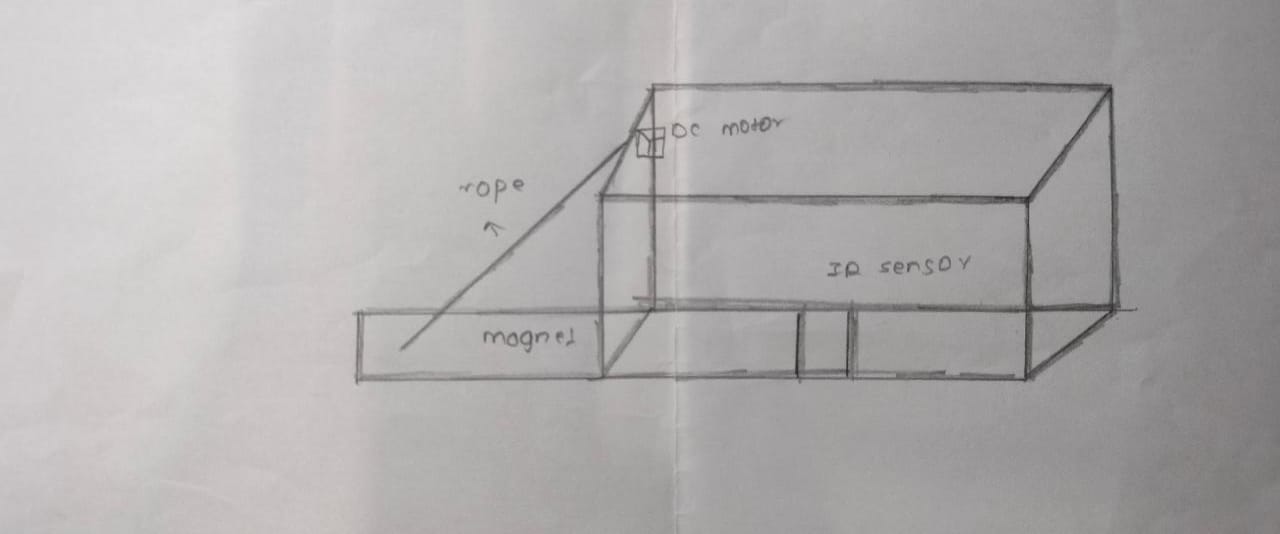 DC motor
rope
IR sensor
magnet